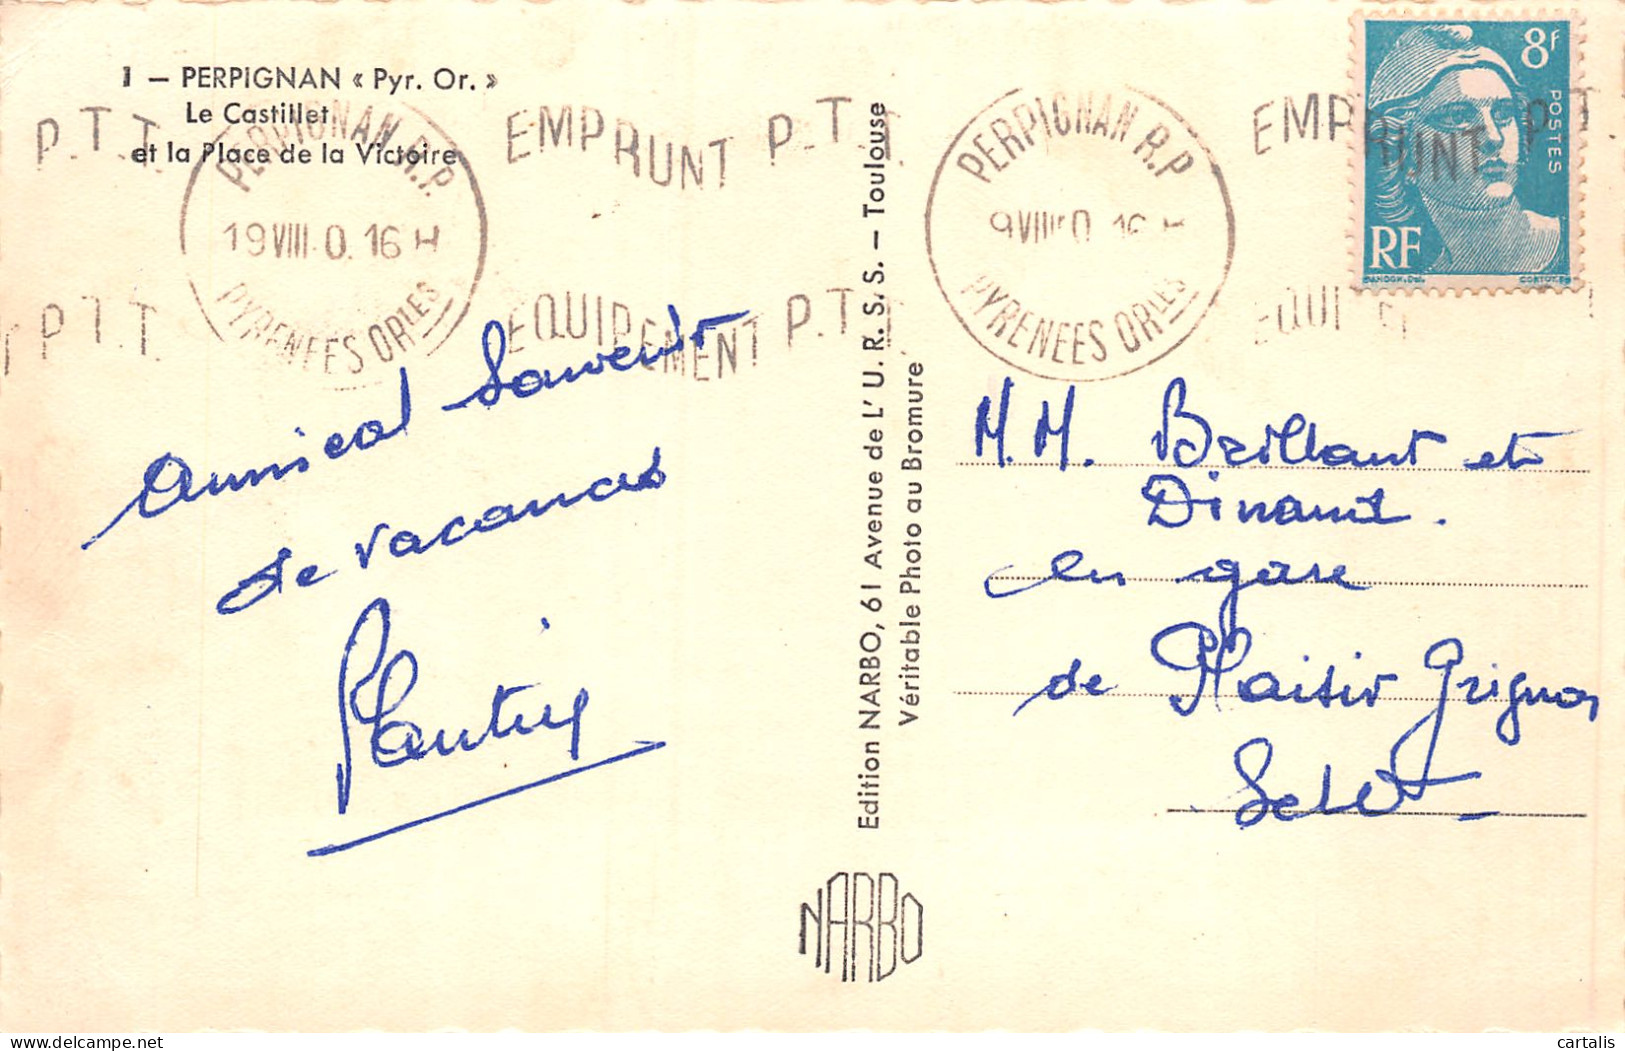 1 — PERPIGNAN « Pyr. Or. »
Le Castillet
et la Place de la Victoire
P.T.T. EMPRUNT P.T.T
PERPIGNAN R.P.
19 VIII 0. 16 H
PYRENEES ORLES
P.T.T. EQUIPEMENT P.T.T
PERPIGNAN R.P
9 VIII 0 16
PYRENEES ORLES
EMPRUNT P.T
EQUIPE
8F
POSTES
RF
Amical Souvenir
de vacances
Edition NARBO, 61 Avenue de L'U.R.S.S. — Toulouse
Véritable Photo au Bromure
NARBO
M.M. Brillant et
Dinant.
en gare
de Plaisir Grignon
S et O
cartalis